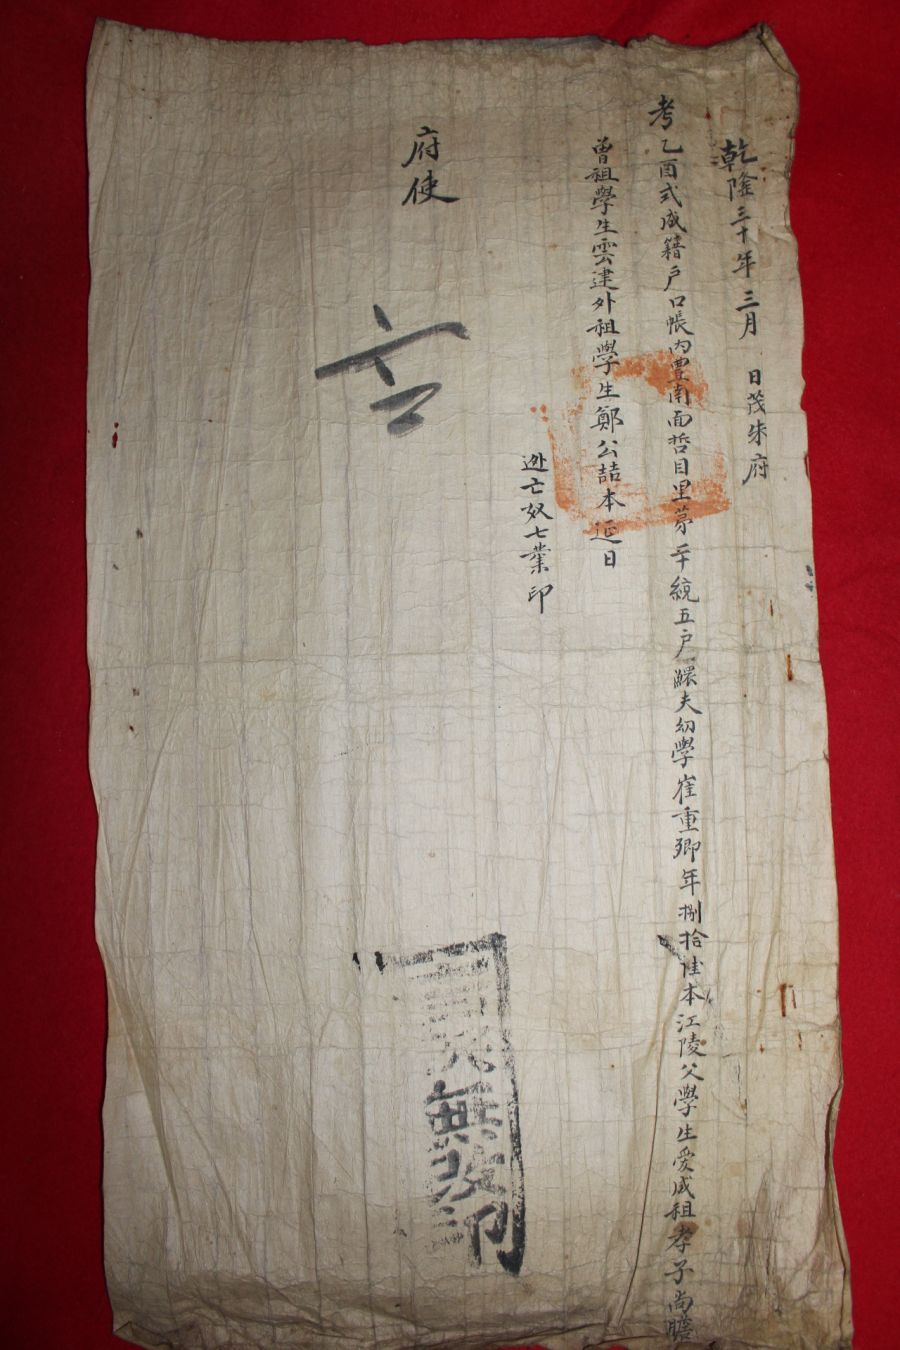 乾隆三十年三月 日茂朱府
考乙酉式成籍户口帳內豊南面哲目里苐二十統五户鰥夫幼學崔重卿年捌拾陸本江陵父學生爱成祖孝子尚瞻
曽祖學生雲建外祖學生鄭公喆本延日
迯亡奴七業印
府使
無改印